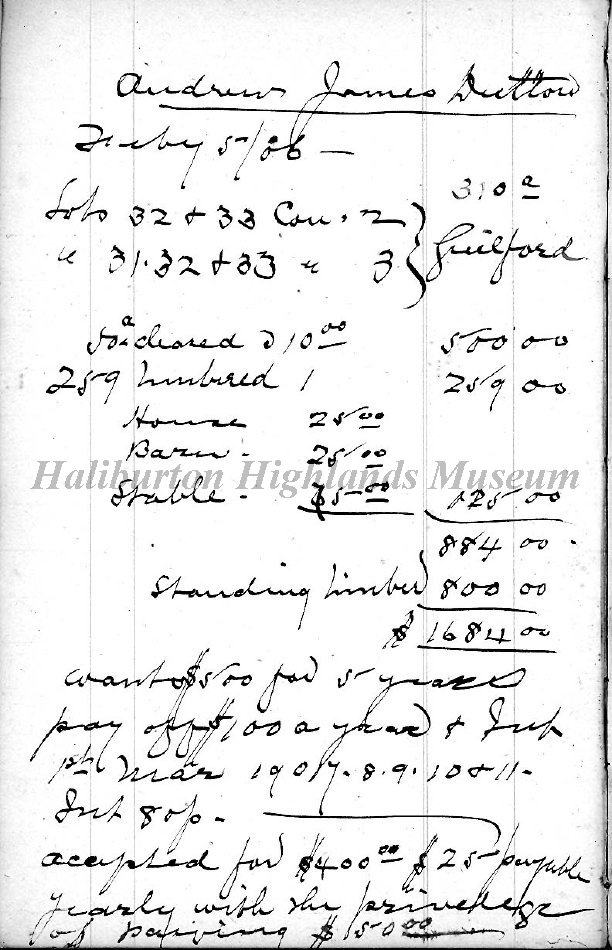 Andrew James Dutton
Feby 5/06 —
310 a
Lots 32 & 33 Con. 2 } Guilford
" 31.32 & 33 " 3
50 a cleared @ 10 00 500 00
259 timbered 1 259 00
House 25 00
Barn - 25 00
Haliburton Highlands Museum
Stable - 75 00 125 00
884 00 -
Standing timber 800 00
$ 1684 00
wants $500 for 5 years
pay off $100 a year & Int
1st Mar 1907. 8. 9. 10 & 11 -
Int 8 o/o -
accepted for $400 00 $25 payable
yearly with the privelege
of paying $50 00